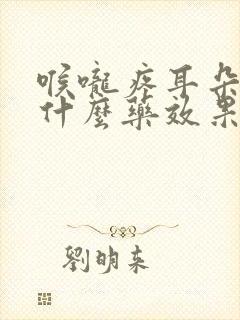 喉嚨疼耳朵
什麼藥效果
劉明來